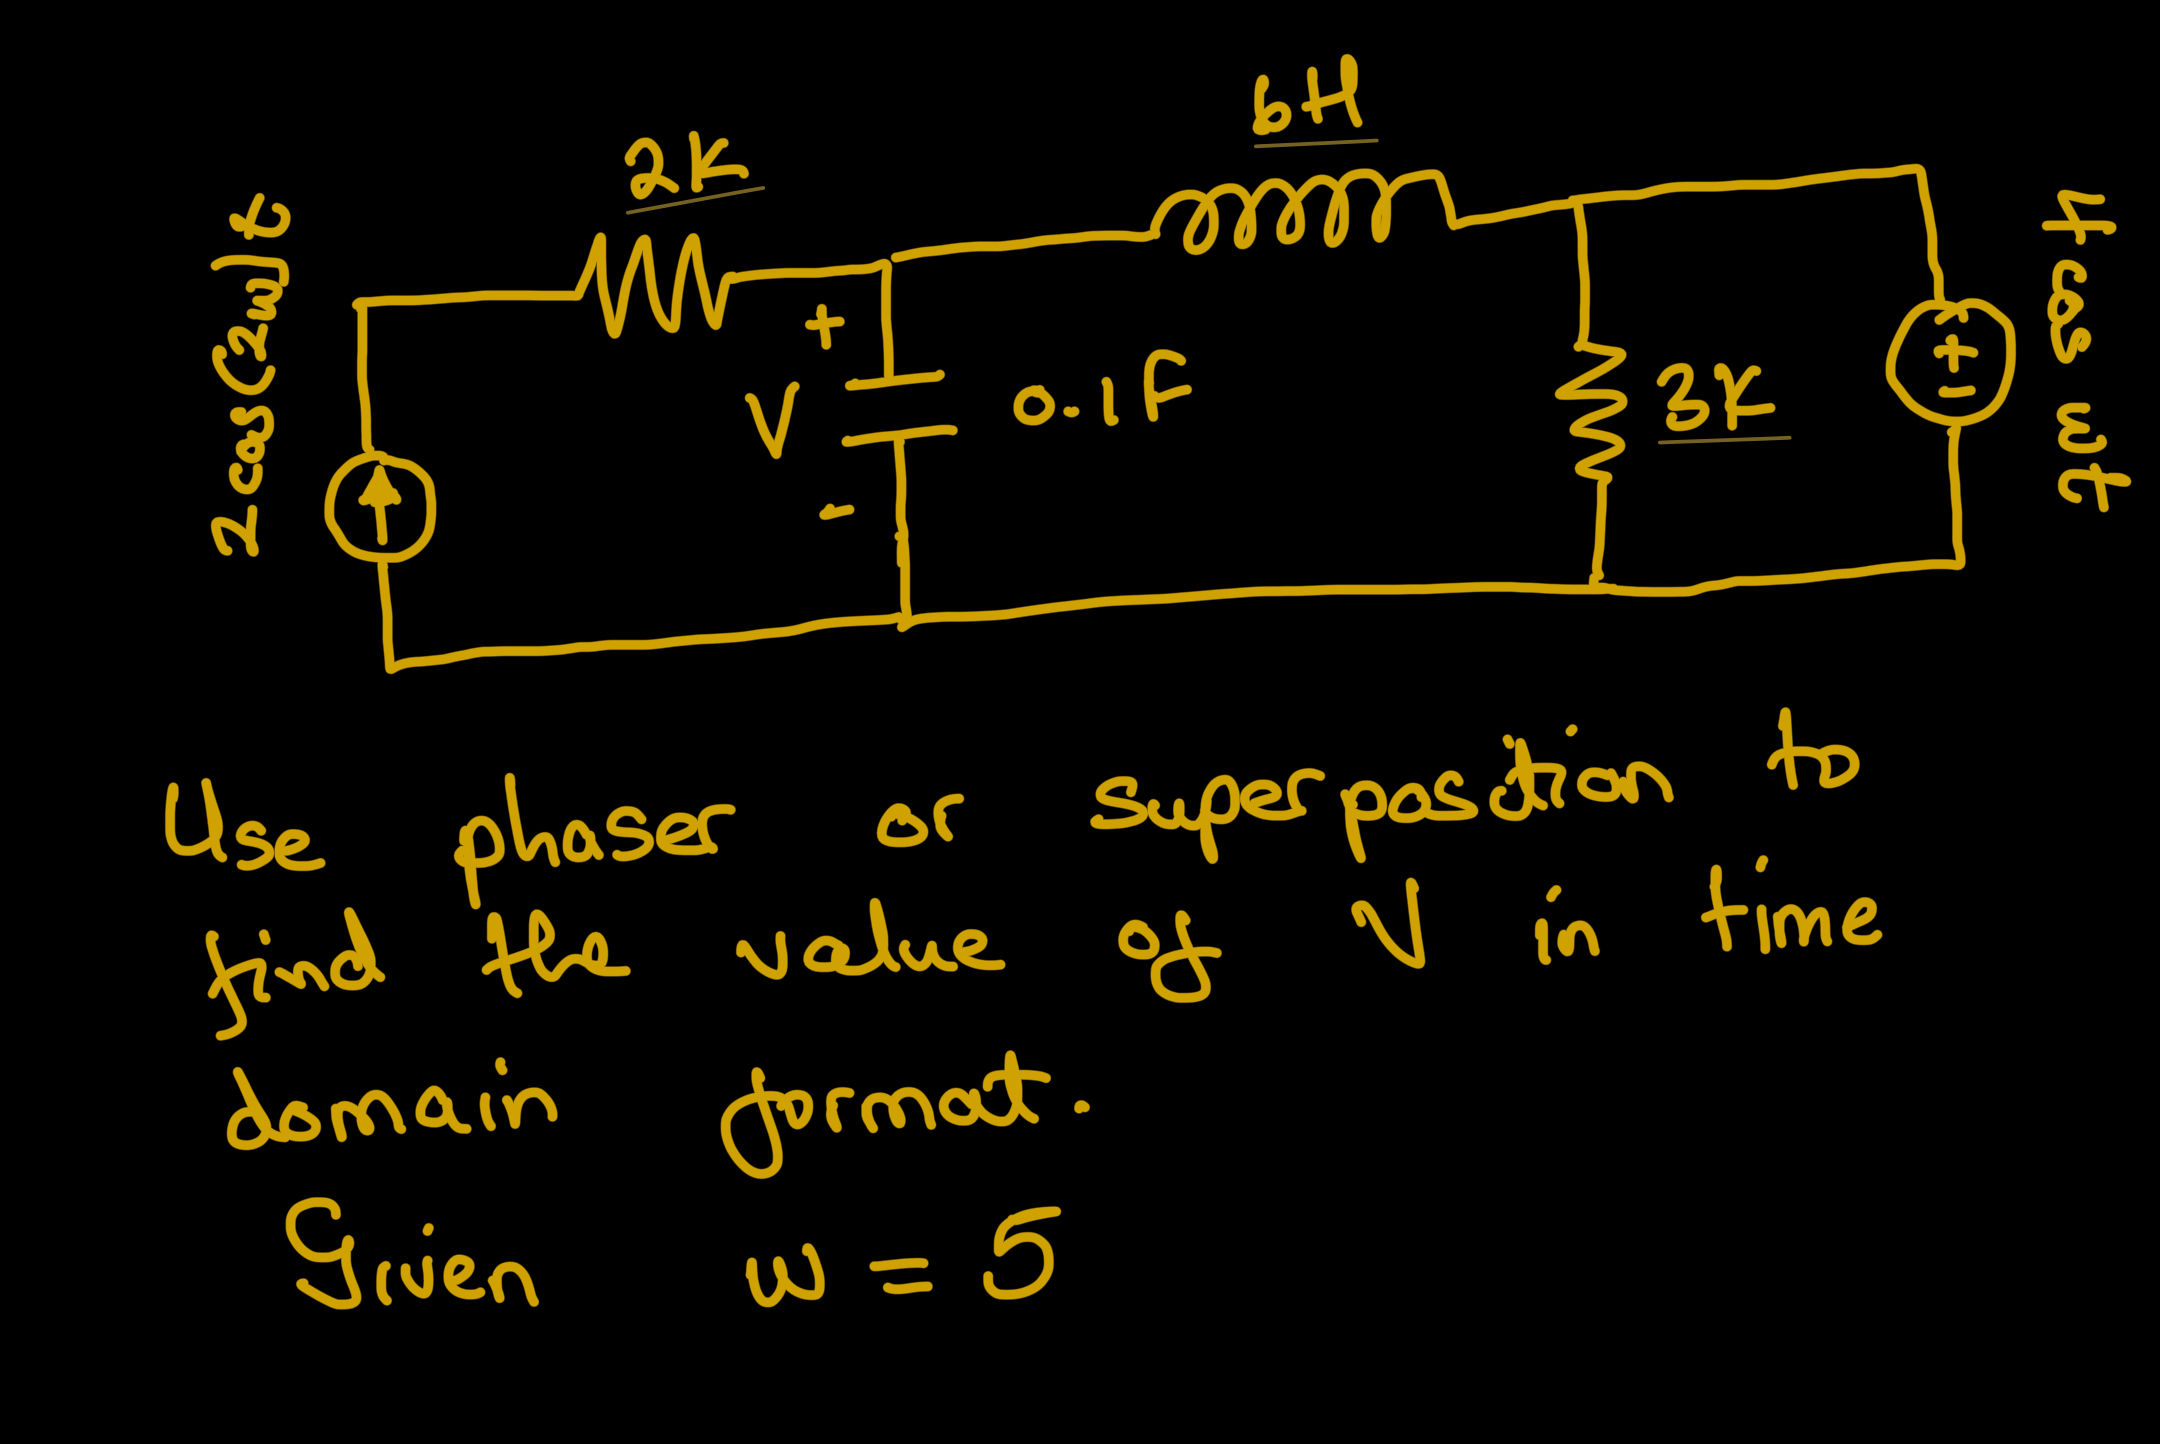 6H
2K
2cos(2w)t
+
V
-
0.1F
3K
+
-
4cos wt
Use phaser or superposition to
find the value of V in time
domain format.
Given w = 5